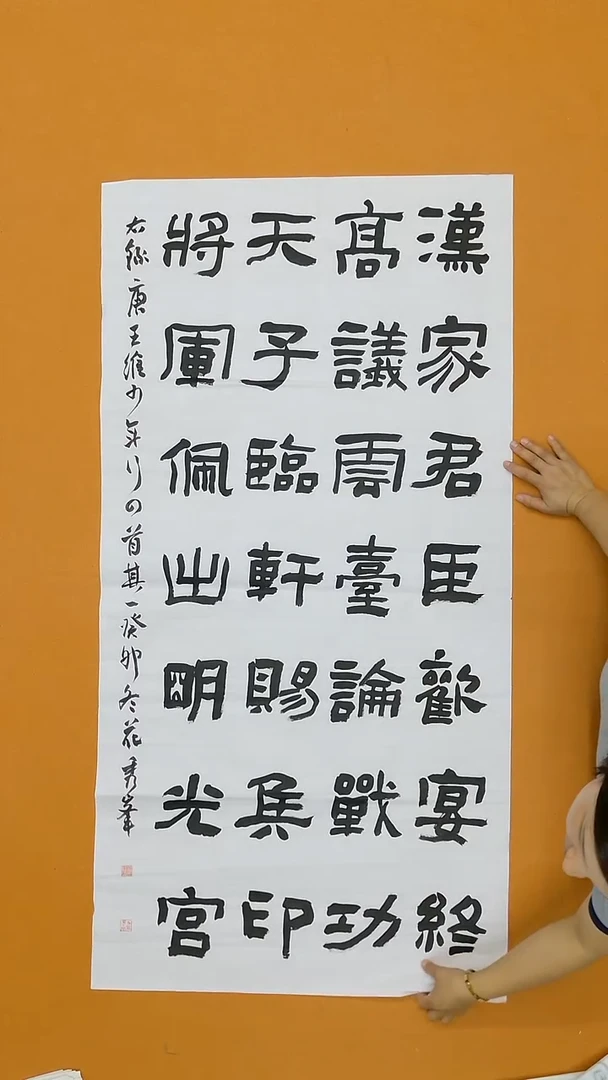 漢家君臣歡宴終
髙議雲臺論戰功
天子臨軒賜矦印
將軍佩出明光宮
右錄唐王維少年行四首其一癸卯冬花秀峯